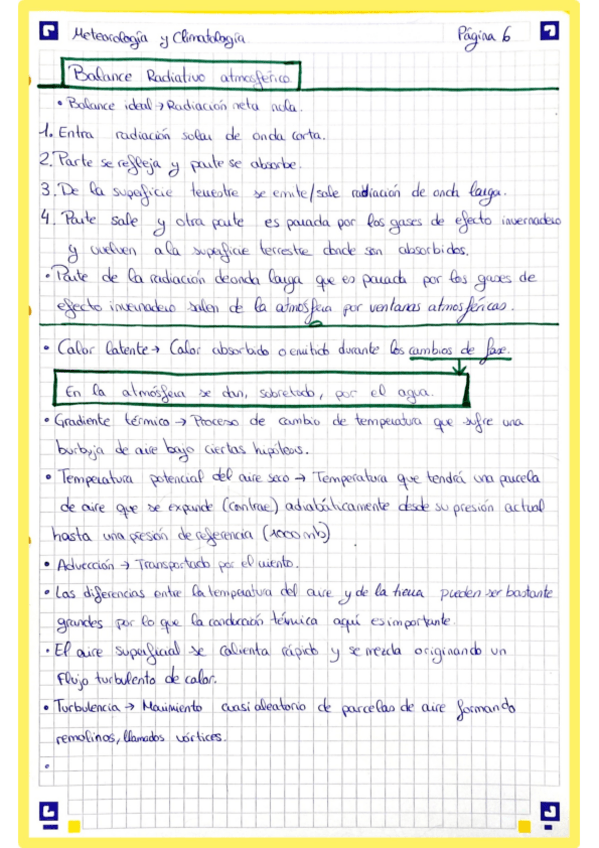 Meteorología y Climatología
Página 6
Balance Radiativo atmosférico
• Balance ideal → Radiación neta nula.
1. Entra radiación solar de onda corta.
2. Parte se refleja y parte se absorbe.
3. De la superficie terrestre se emite/sale radiación de onda larga.
4. Parte sale y otra parte es parada por los gases de efecto invernadero
y vuelven a la superficie terrestre donde son absorbidos.
• Parte de la radiación de onda larga que es parada por los gases de
efecto invernadero salen de la atmósfera por ventanas atmosféricas.
• Calor latente → Calor absorbido o emitido durante los cambios de fase.
En la atmósfera se dan, sobretodo, por el agua.
• Gradiente térmico → Proceso de cambio de temperatura que sufre una
burbuja de aire bajo ciertas hipótesis.
• Temperatura potencial del aire seco → Temperatura que tendrá una parcela
de aire que se expande (contrae) adiabáticamente desde su presión actual
hasta una presión de referencia (1000 mb)
• Advección → Transportado por el viento.
• Las diferencias entre la temperatura del aire y de la tierra pueden ser bastante
grandes por lo que la conducción térmica aquí es importante.
• El aire superficial se calienta rápido y se mezcla originando un
flujo turbulento de calor.
• Turbulencia → Movimiento cuasialeatorio de parcelas de aire formando
remolinos, llamados vórtices.
•